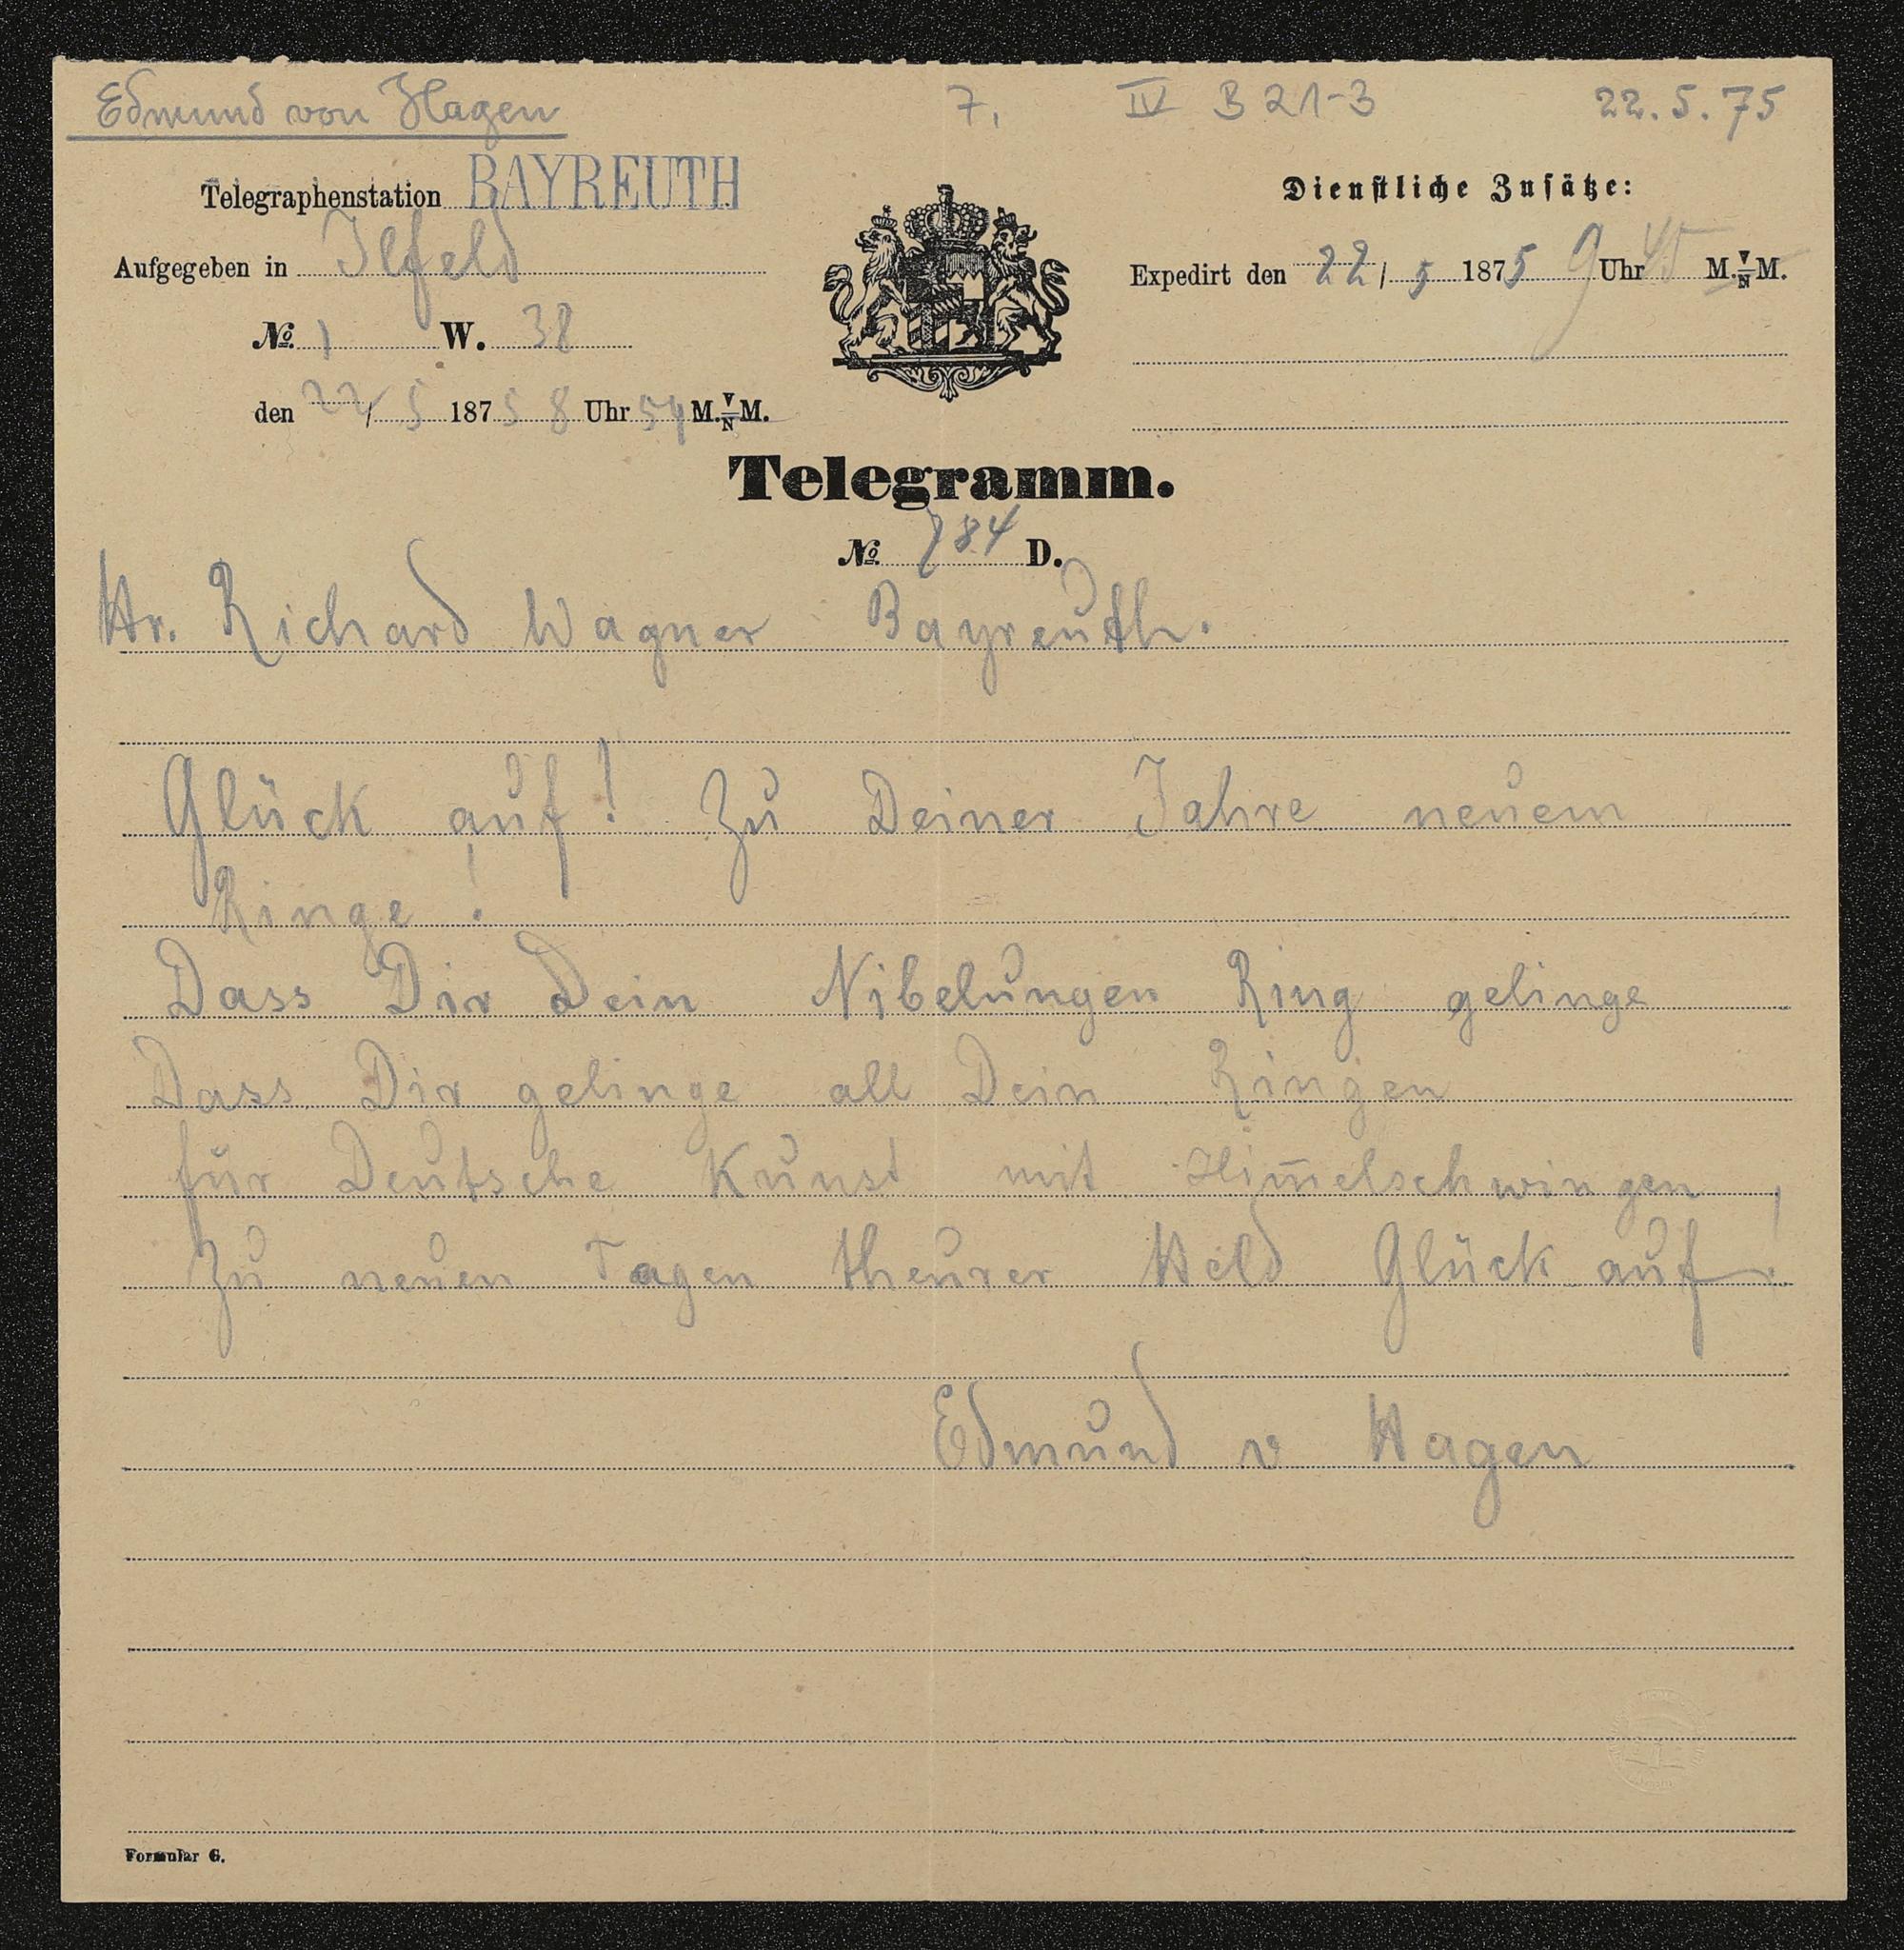 Edmund von Hagen 7. IV B 21-3 22.5.75
Telegraphenstation BAYREUTH
Dienstliche Zusätze:
Aufgegeben in Ilfeld
Expedirt den 22/5 1875 9 Uhr 45 M. V/N M.
No. 1 W. 38
den 22/5 1875 8 Uhr 54 M. V/N M.
Telegramm.
No. 784 D.
Hr. Richard Wagner Bayreuth.
Glück auf! Zu Deiner Jahre neuem
Ringe!
Dass Dir Dein Nibelungen Ring gelinge
Dass Dir gelinge all Dein Ringen
für Deutsche Kunst mit Him̅elschwingen,
Zu neuen Tagen theurer Held Glück auf!
Edmund v Hagen
Formular G.